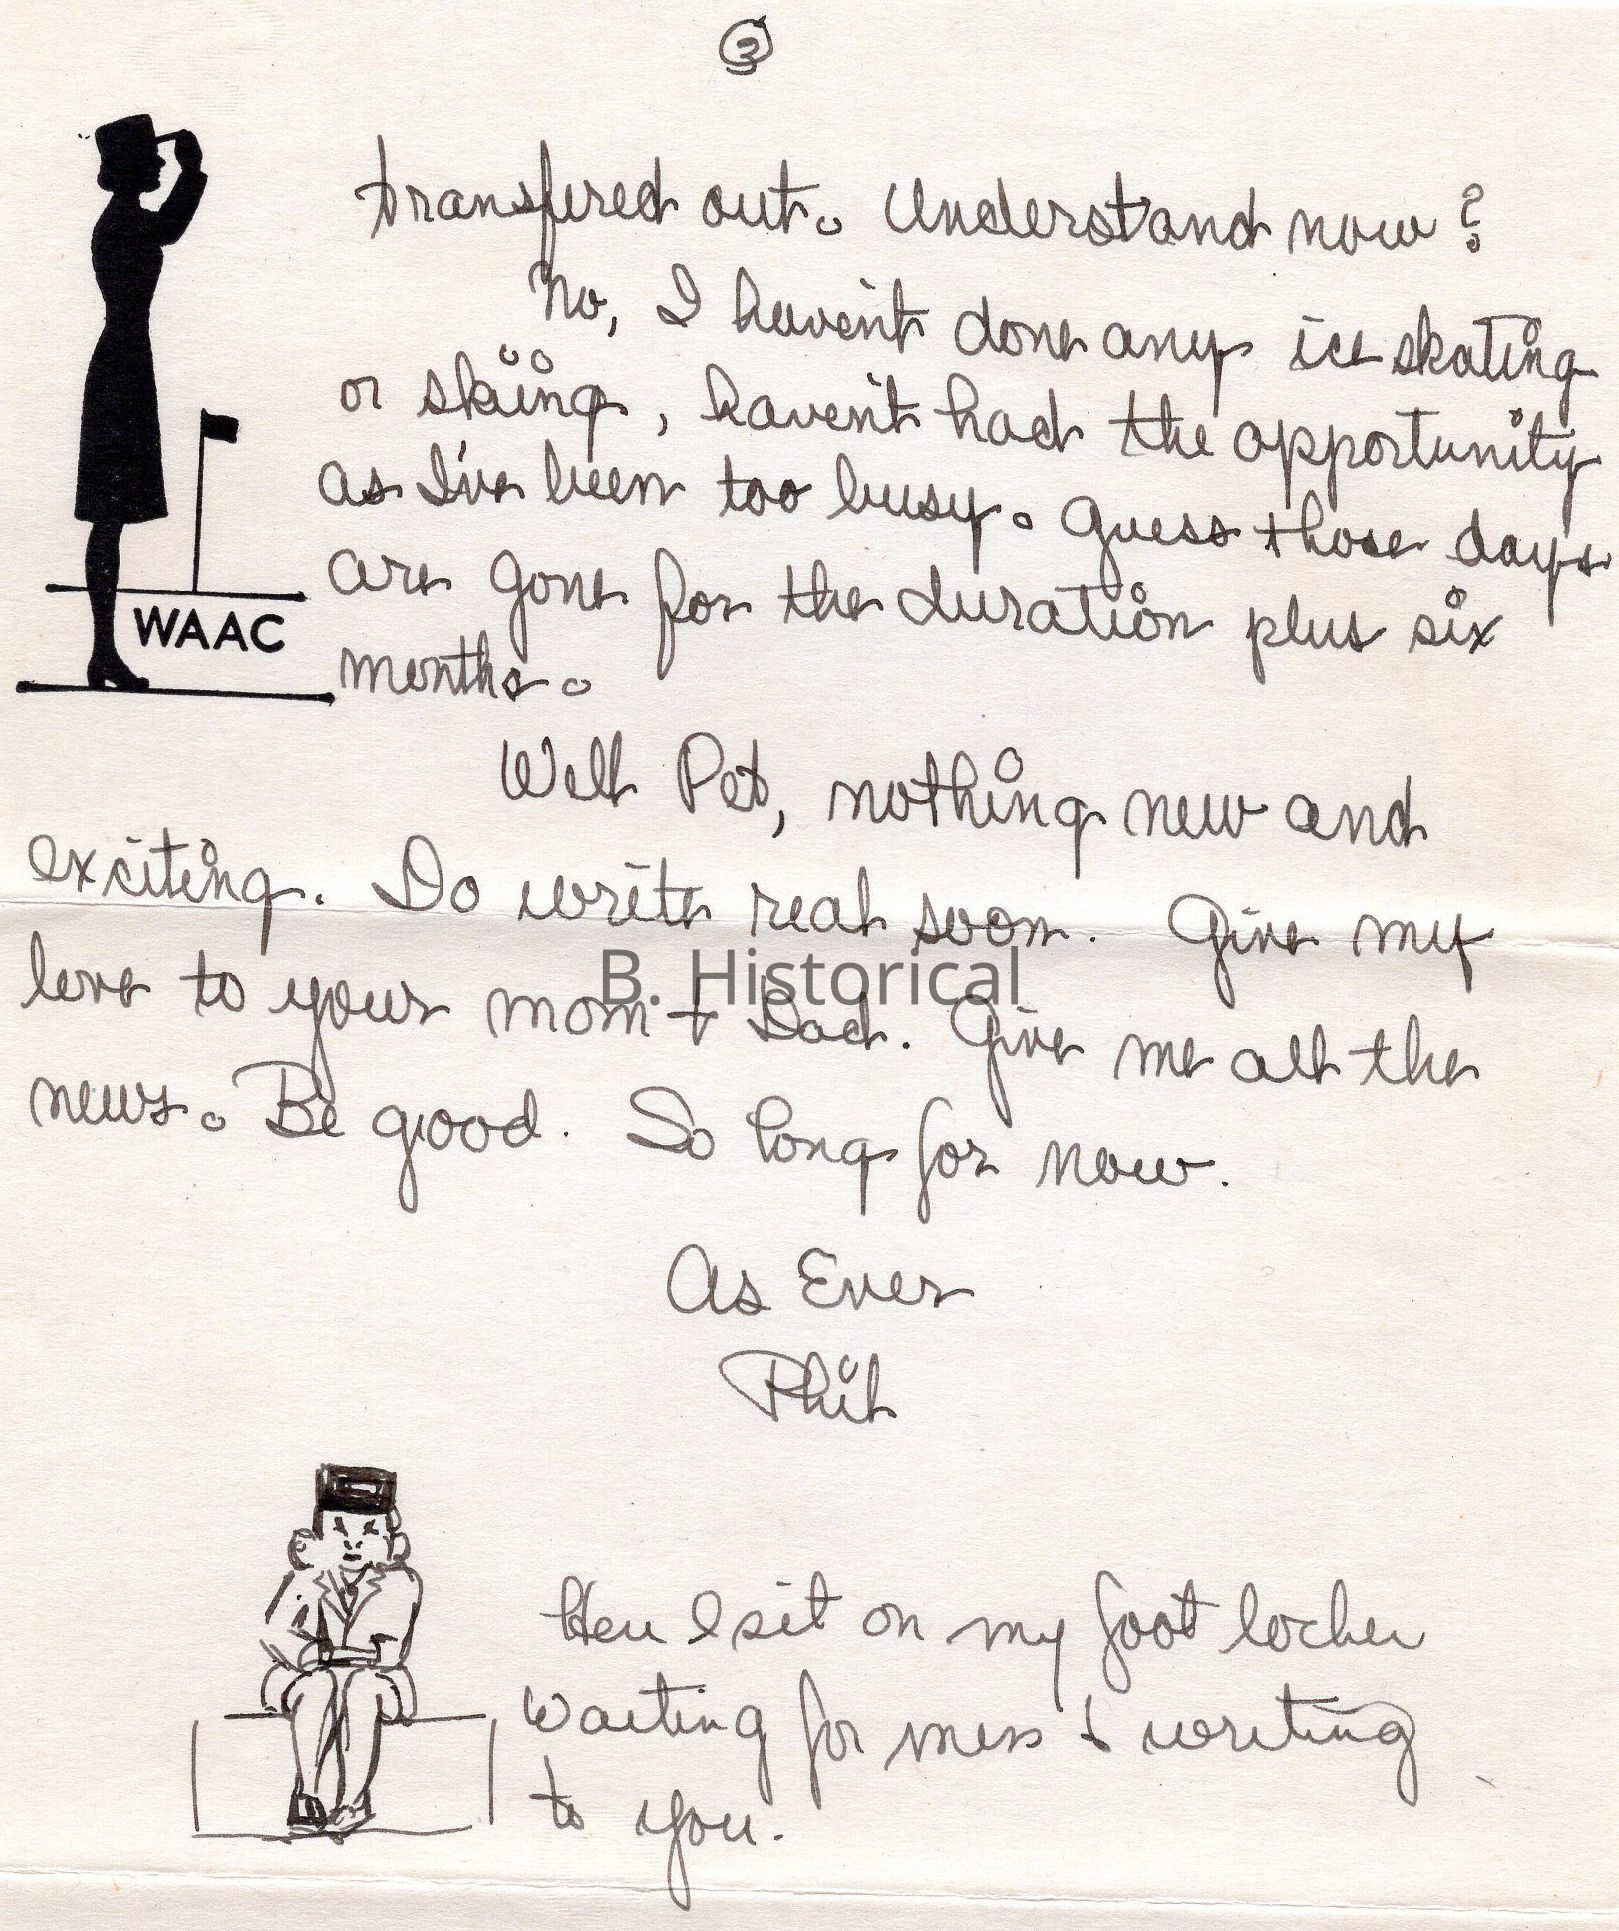 3
transfered out. Understand now?
No, I haven't done any ice skating
or skiing, haven't had the opportunity
as I've been too busy. Guess those days
are gone for the duration plus six
months.
WAAC
Well Pet, nothing new and
exciting. Do write real soon. Give my
love to your mom + Dad. Give me all the
news. Be good. So long for now.
As Ever
Phil
Here I sit on my foot locker
waiting for mess & writing
to you.
B. Historical